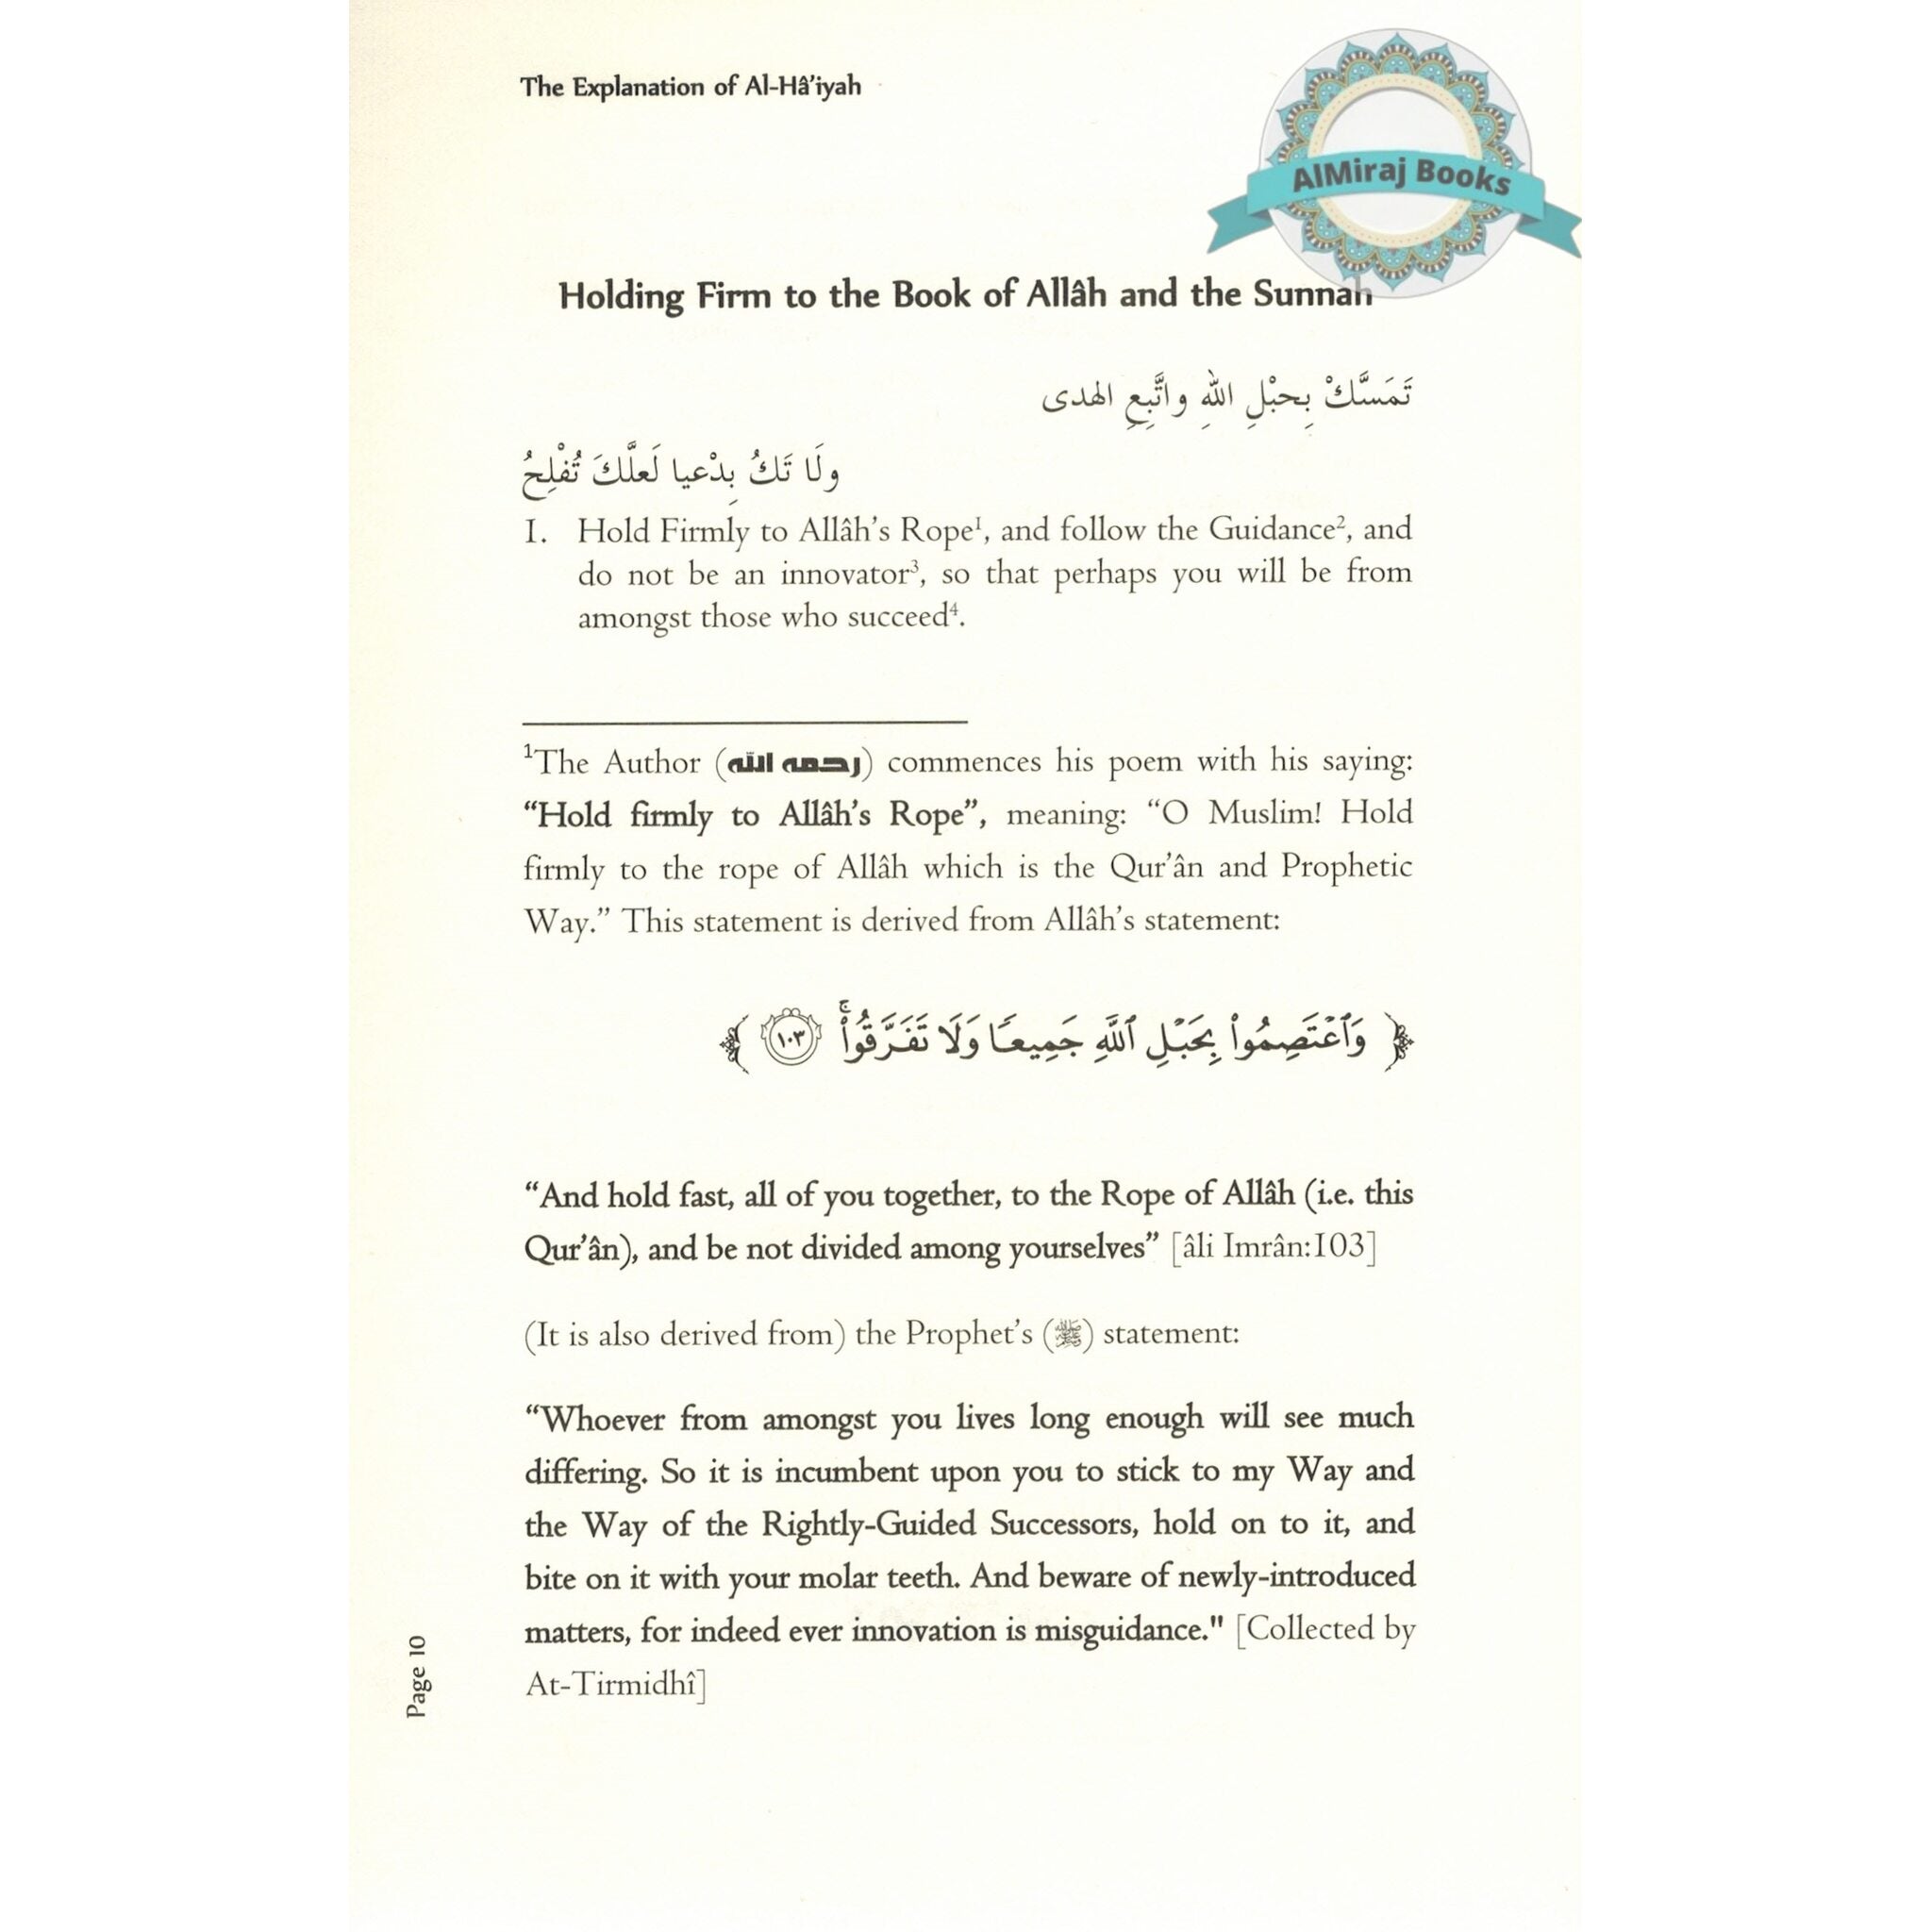 The Explanation of Al-Hâ'iyah
AlMiraj Books
Holding Firm to the Book of Allâh and the Sunnah
تَمَسَّكْ بِحبْلِ اللهِ واتَّبِعِ الهدى
ولَا تَكُ بِدْعيا لَعلَّكَ تُفْلِحُ
I. Hold Firmly to Allâh's Rope¹, and follow the Guidance², and
do not be an innovator³, so that perhaps you will be from
amongst those who succeed⁴.
¹The Author (رحمه الله) commences his poem with his saying:
“Hold firmly to Allâh's Rope”, meaning: “O Muslim! Hold
firmly to the rope of Allâh which is the Qur'ân and Prophetic
Way.” This statement is derived from Allâh's statement:
﴿ وَٱعْتَصِمُوا۟ بِحَبْلِ ٱللَّهِ جَمِيعًا وَلَا تَفَرَّقُوا۟ ۚ ١٠٣ ﴾
“And hold fast, all of you together, to the Rope of Allâh (i.e. this
Qur'ân), and be not divided among yourselves” [âli Imrân:103]
(It is also derived from) the Prophet's (ﷺ) statement:
“Whoever from amongst you lives long enough will see much
differing. So it is incumbent upon you to stick to my Way and
the Way of the Rightly-Guided Successors, hold on to it, and
bite on it with your molar teeth. And beware of newly-introduced
matters, for indeed ever innovation is misguidance." [Collected by
At-Tirmidhî]
Page 10